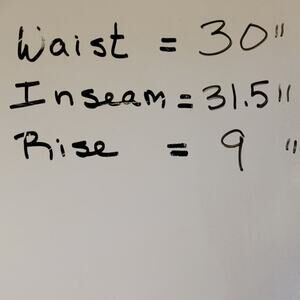 Waist = 30"
Inseam = 31.5"
Rise = 9 "